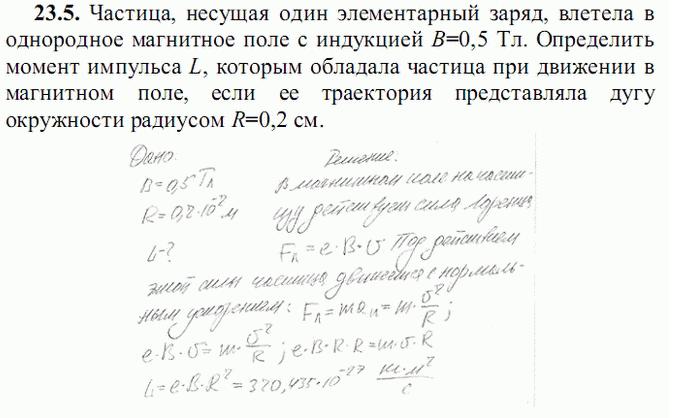 23.5. Частица, несущая один элементарный заряд, влетела в
однородное магнитное поле с индукцией B=0,5 Тл. Определить
момент импульса L, которым обладала частица при движении в
магнитном поле, если ее траектория представляла дугу
окружности радиусом R=0,2 см.
Дано: Решение:
B=0,5 Тл В магнитном поле на части-
R=0,2·10⁻² м цу действует сила Лоренца
L-? Fл = e·B·υ Под действием
этой силы частица движется с нормаль-
ным ускорением: Fл = maн = m·υ²/R ;
e·B·υ = m·υ²/R ; e·B·R·R = m·υ·R
L = e·B·R² = 320,435·10⁻²⁷ кг·м²/с